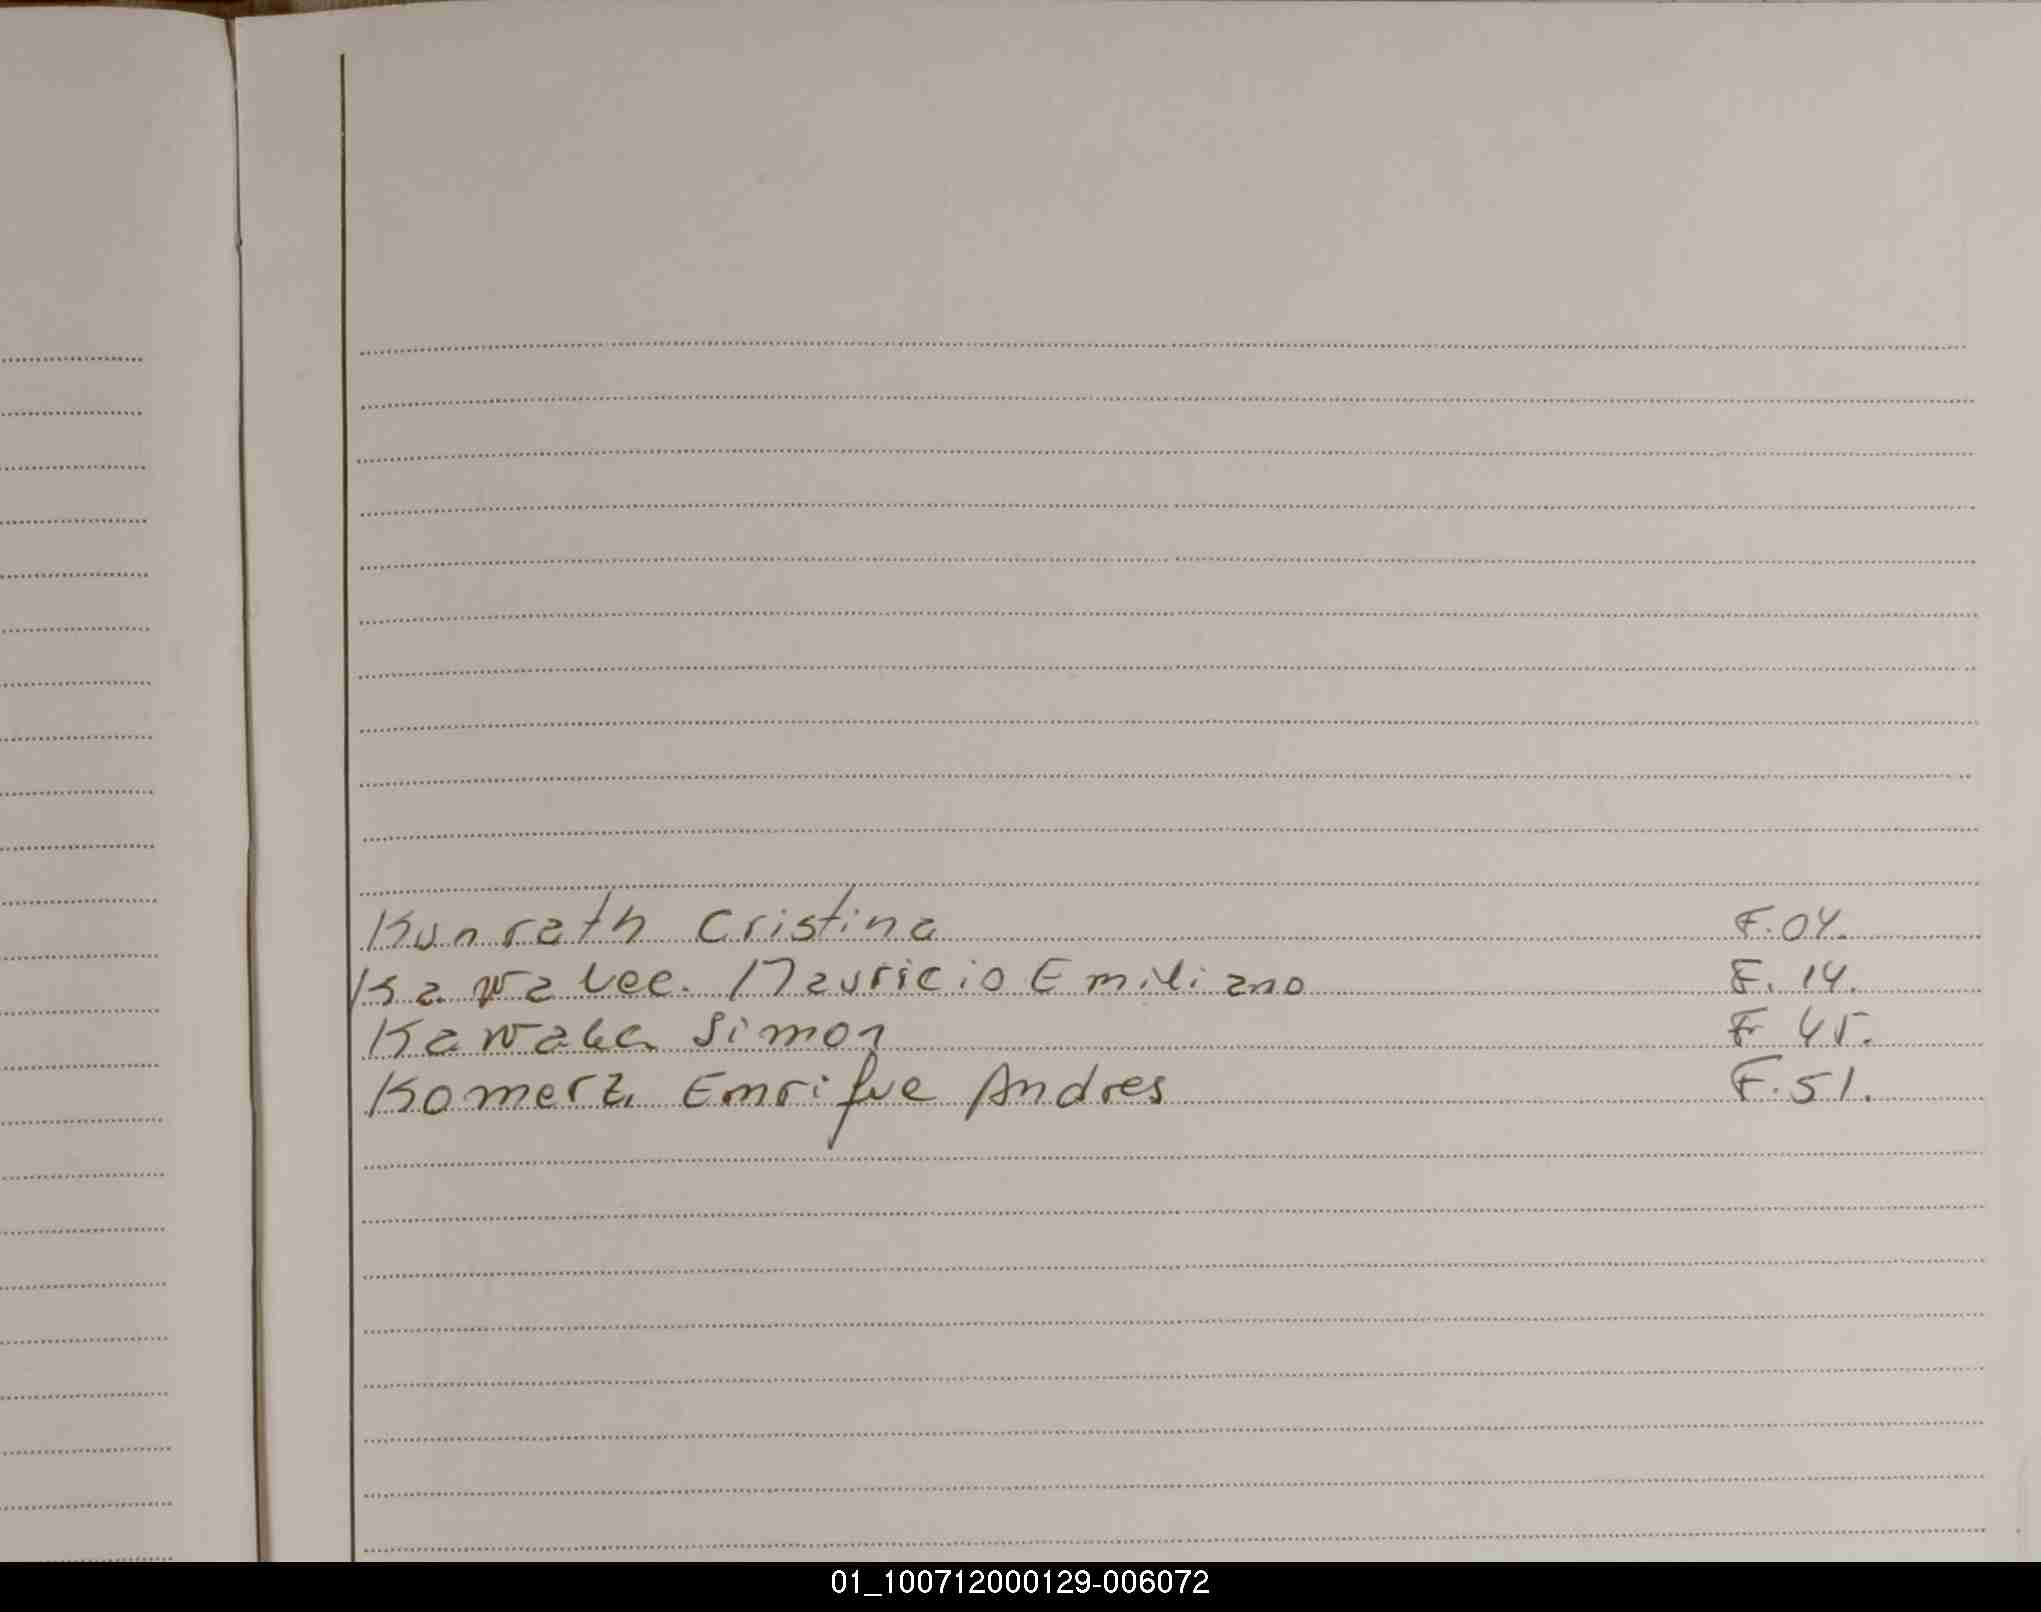 Kunrath Cristina F.04.
Kawalec. Mauricio Emiliano F. 14.
Kawala Simon F 45.
Komerz. Emrique Andres F.51.
01_100712000129-006072